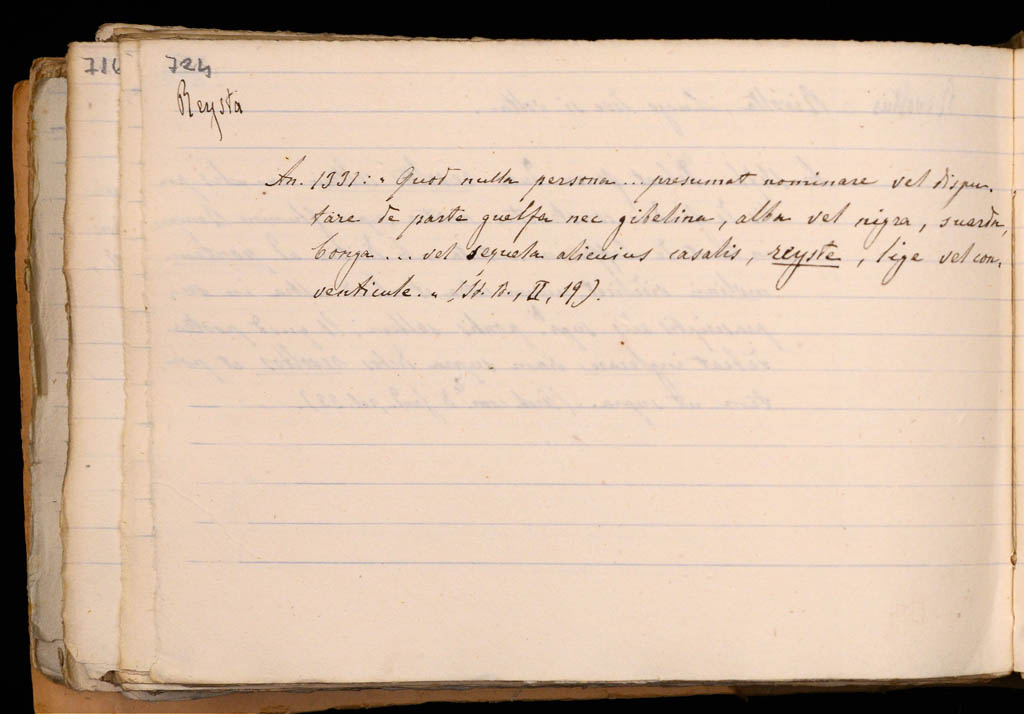 716 724
Reysta
An. 1331: " Quod nulla persona ... presumat nominare vel dispu-
tare de parte guelfa nec gibelina, alba vel nigra, suarda,
bonga ... vel sequela alicuius casalis, reyste, lige vel con-
venticule. " (St. B., II, 19).